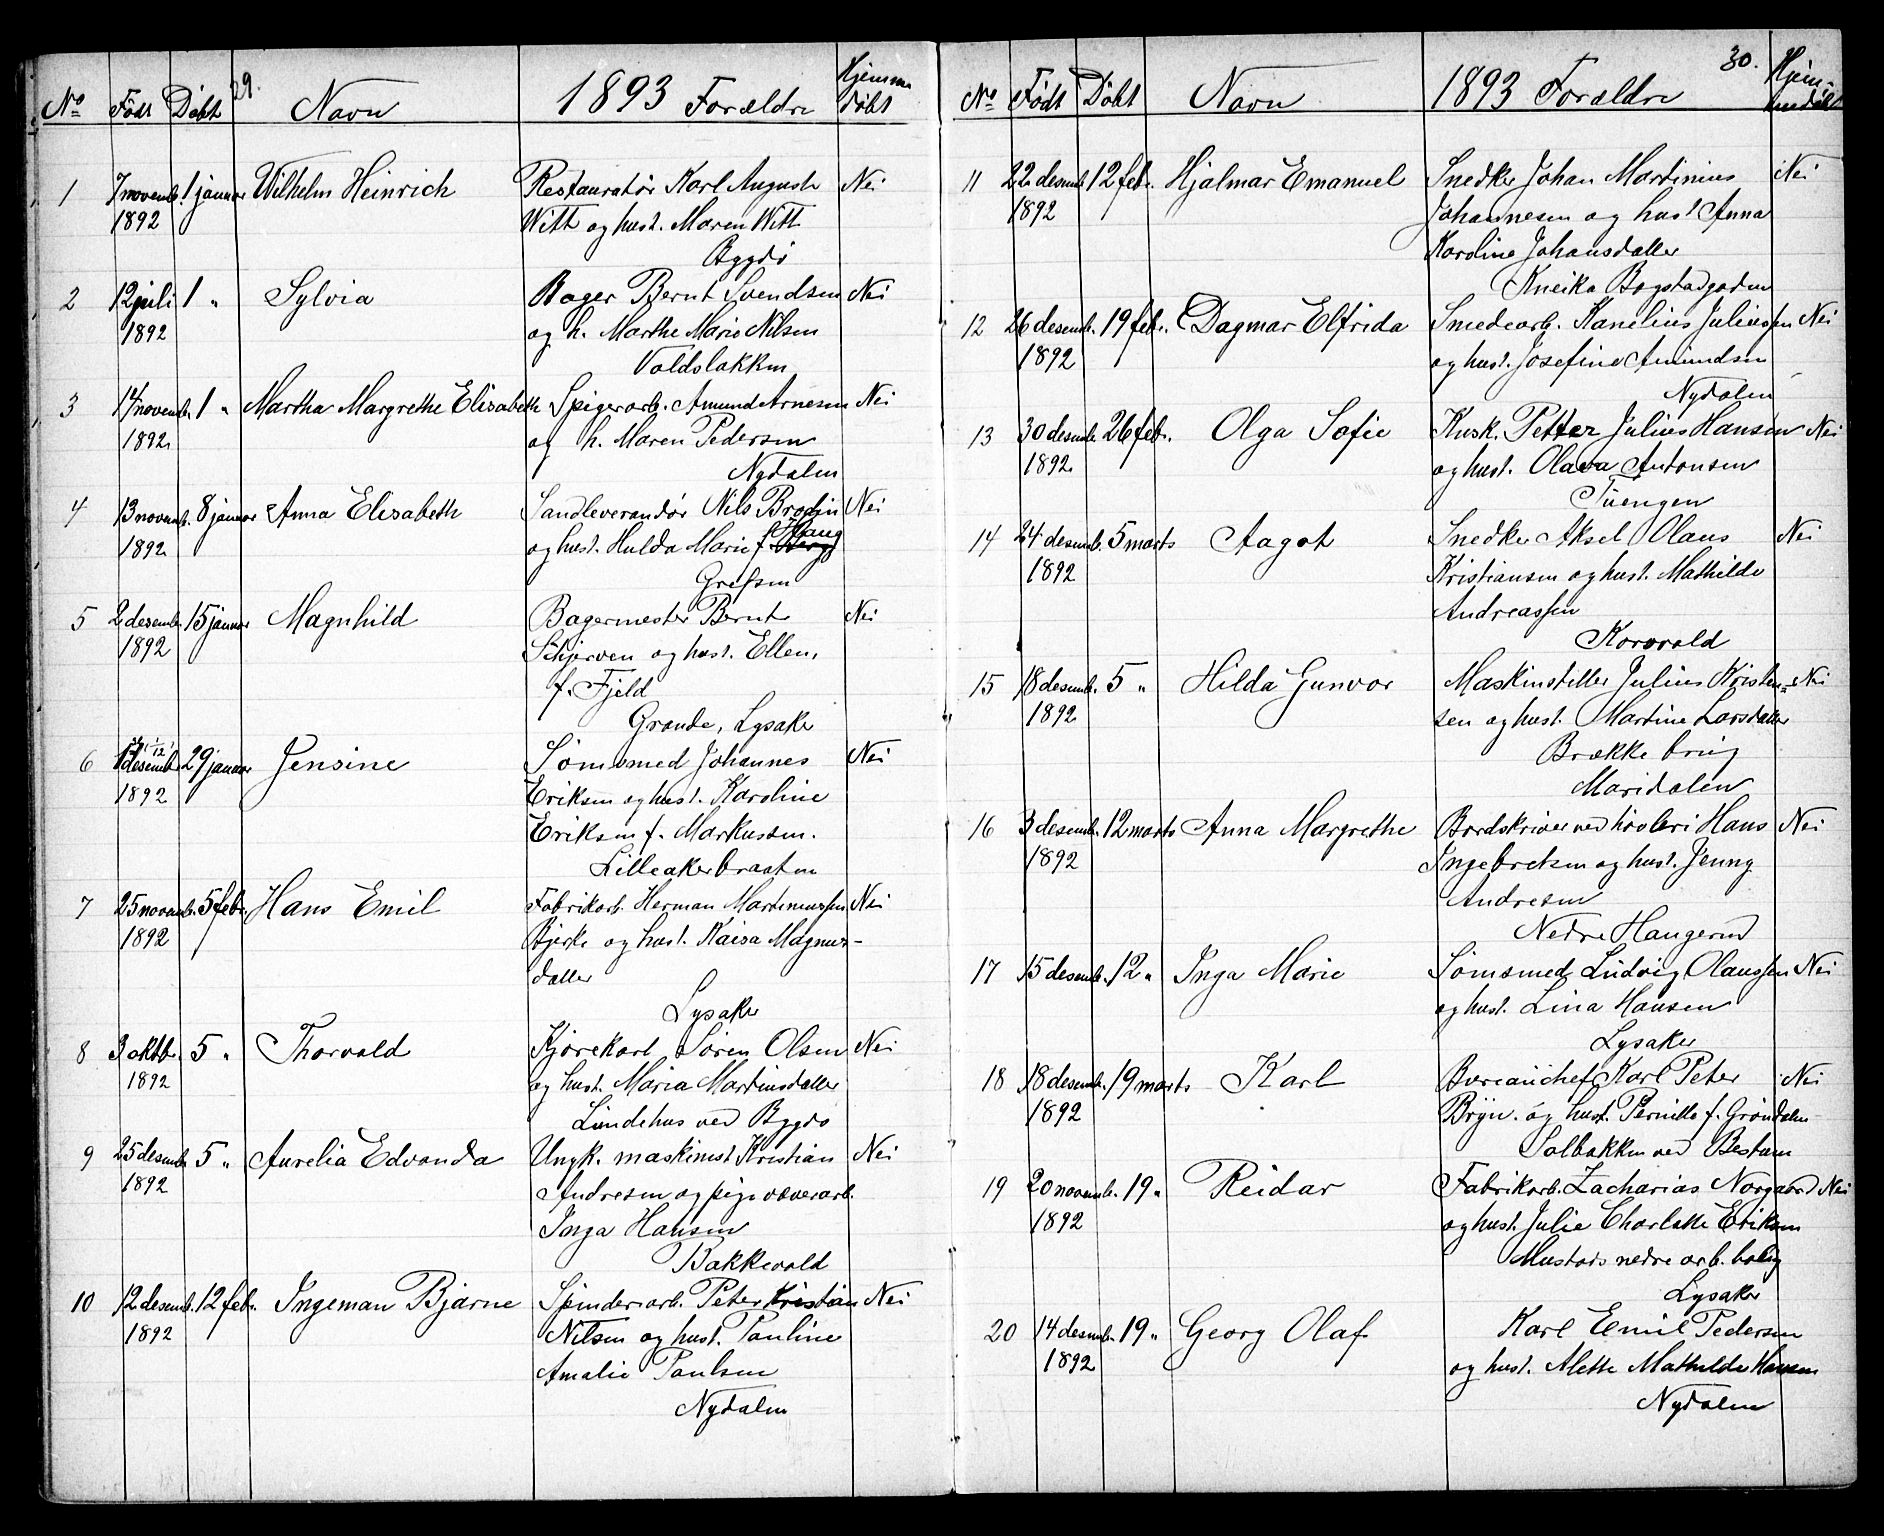 29.
No Født Døbt Navn 1893 Forældre Hjemmedøbt
1 7 novemb. 1 januar Wilhelm Heinrich Restauratør Karl August Nei
1892 Witt og hust. Maren Witt
Bygdø
2 12 juli 1 " Sylvia Bager Bernt Svendsen Nei
1892 og h. Marthe Marie Nilsen
Voldsløkken
3 14 novemb. 1 " Martha Margrethe Elisabeth Spigerarb. Amund Arnesen Nei
1892 og h. Maren Pedersen
Nydalen
4 13 novemb. 8 januar Anna Elisabeth Sandleverandør Nils Brodin Nei
1892 og hust. Hulda Marie f. Berg Haug
Grefsen
5 2 desemb. 15 januar Magnhild Bagermester Bernt Nei
1892 Schjerven og hust. Ellen,
f. Fjeld
Grande, Lysaker
6 1 desemb. 29 januar Jensine Sømsmed Johannes Nei
1892 Eriksen og hust. Karoline
Eriksen f. Markussen.
Lilleakerbraaten
7 25 novemb. 5 febr. Hans Emil Fabrikarb. Herman Martinussen Nei
1892 Bjerke og hust. Kaisa Magnus-
datter
Lysaker
8 3 oktb. 5 " Thorvald Kjørekarl Søren Olsen Nei
1892 og hust. Maria Martinsdatter
Lindehus ved Bygdø
9 25 desemb. 5 " Aurelia Edvanda Ungk. maskinist Kristian Nei
1892 Andresen og pige væverarb.
Inga Hansen
Bakkevold
10 12 desemb. 12 feb. Ingeman Bjarne Spinderiarb. Peter Kristian Nei
1892 Nilsen og hust. Pauline
Amalie Paulsen
Nydalen
30.
No Født Døbt Navn 1893 Forældre
11 22 desemb. 12 feb. Hjalmar Emanuel Snedker Johan Martinius Nei
1892 Johannesen og hust Anna
Karoline Johansdatter
Kneika Bogstadgaden
12 26 desemb. 19 feb. Dagmar Elfrida Smedearb. Kanelius Juliussen Nei
1892 og hust. Josefine Amundsen
Nydalen
13 30 desemb. 26 feb. Olga Sofie Kusk. Petter Julius Hansen Nei
1892 og hust. Olava Antonsen
Tuengen
14 24 desemb. 5 marts Aagot Snedker Aksel Olaus Nei
1892 Kristiansen og hust. Mathilde
Andreassen
Korsvold
15 18 desemb. 5 " Hilda Gunvor Maskinstiller Julius Kristen= Nei
1892 sen og hust. Martine Larsdatter
Brække brug
Maridalen
16 3 desemb. 12 marts Anna Margrethe Bordskriver ved høvleri Hans Nei
1892 Ingebretsen og hust. Jenny
Andresen
Nedre Haugerud
17 15 desemb. 12 " Inga Marie Sømsmed Ludvig Olaussen Nei
og hust. Lina Hansen
Lysaker
18 18 desemb. 19 marts Karl Bureauchef Karl Peter Nei
1892 Bryn. og hust. Pernille f. Grøndalen
Solbakken ved Bestum
19 20 novemb. 19 " Reidar Fabrikarb. Zacharias Norgaard Nei
1892 og hust. Julie Charlotte Eriksen
Mustads nedre arb. bolig
Lysaker
20 14 desemb. 19 " Georg Olaf Karl Emil Pedersen
1892 og hust. Alette Mathilde Hansen
Nydalen